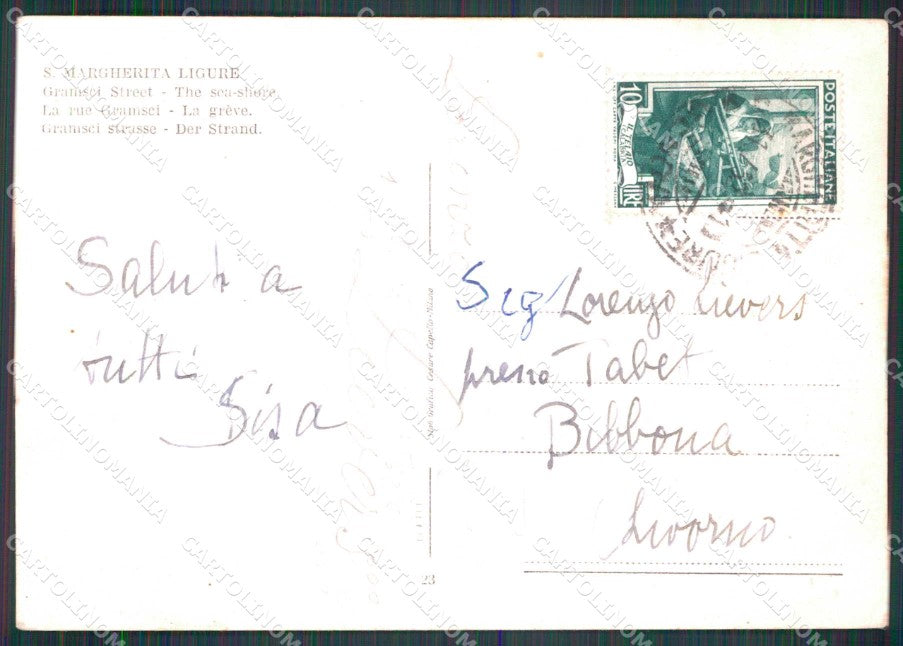 S. MARGHERITA LIGURE
Gramsci Street - The sea-shore.
La rue Gramsci - La grêve.
Gramsci strasse - Der Strand.
Saluti a
tutti
Sisa
POSTE ITALIANE
10
LIRE
IL TELAIO
Sig Lorenzo Lievers
presso Tabet
Bibbona
Livorno
Cesare Capello - Milano
23
CARTOLINOMANIA